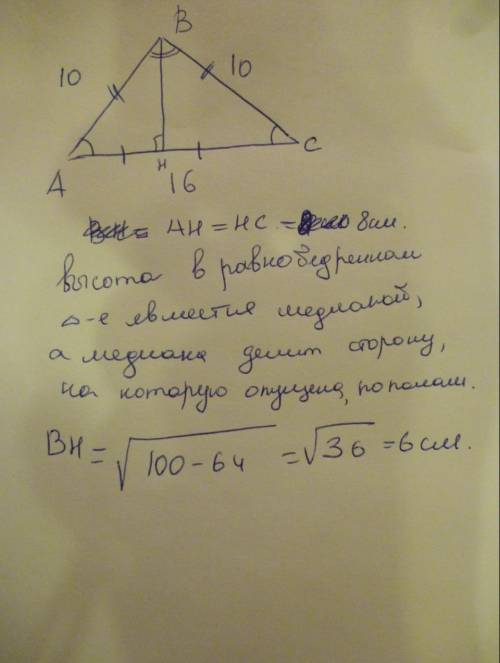 B
10 10
A H C
16
AH = HC = 8см.
Высота в равнобедренном
△-е является медианой,
а медиана делит сторону,
на которую опущена, пополам.
BH = √100-64 = √36 = 6 см.